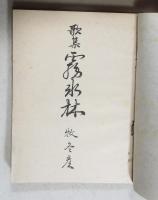 歌集
霧氷林
牧冬彦